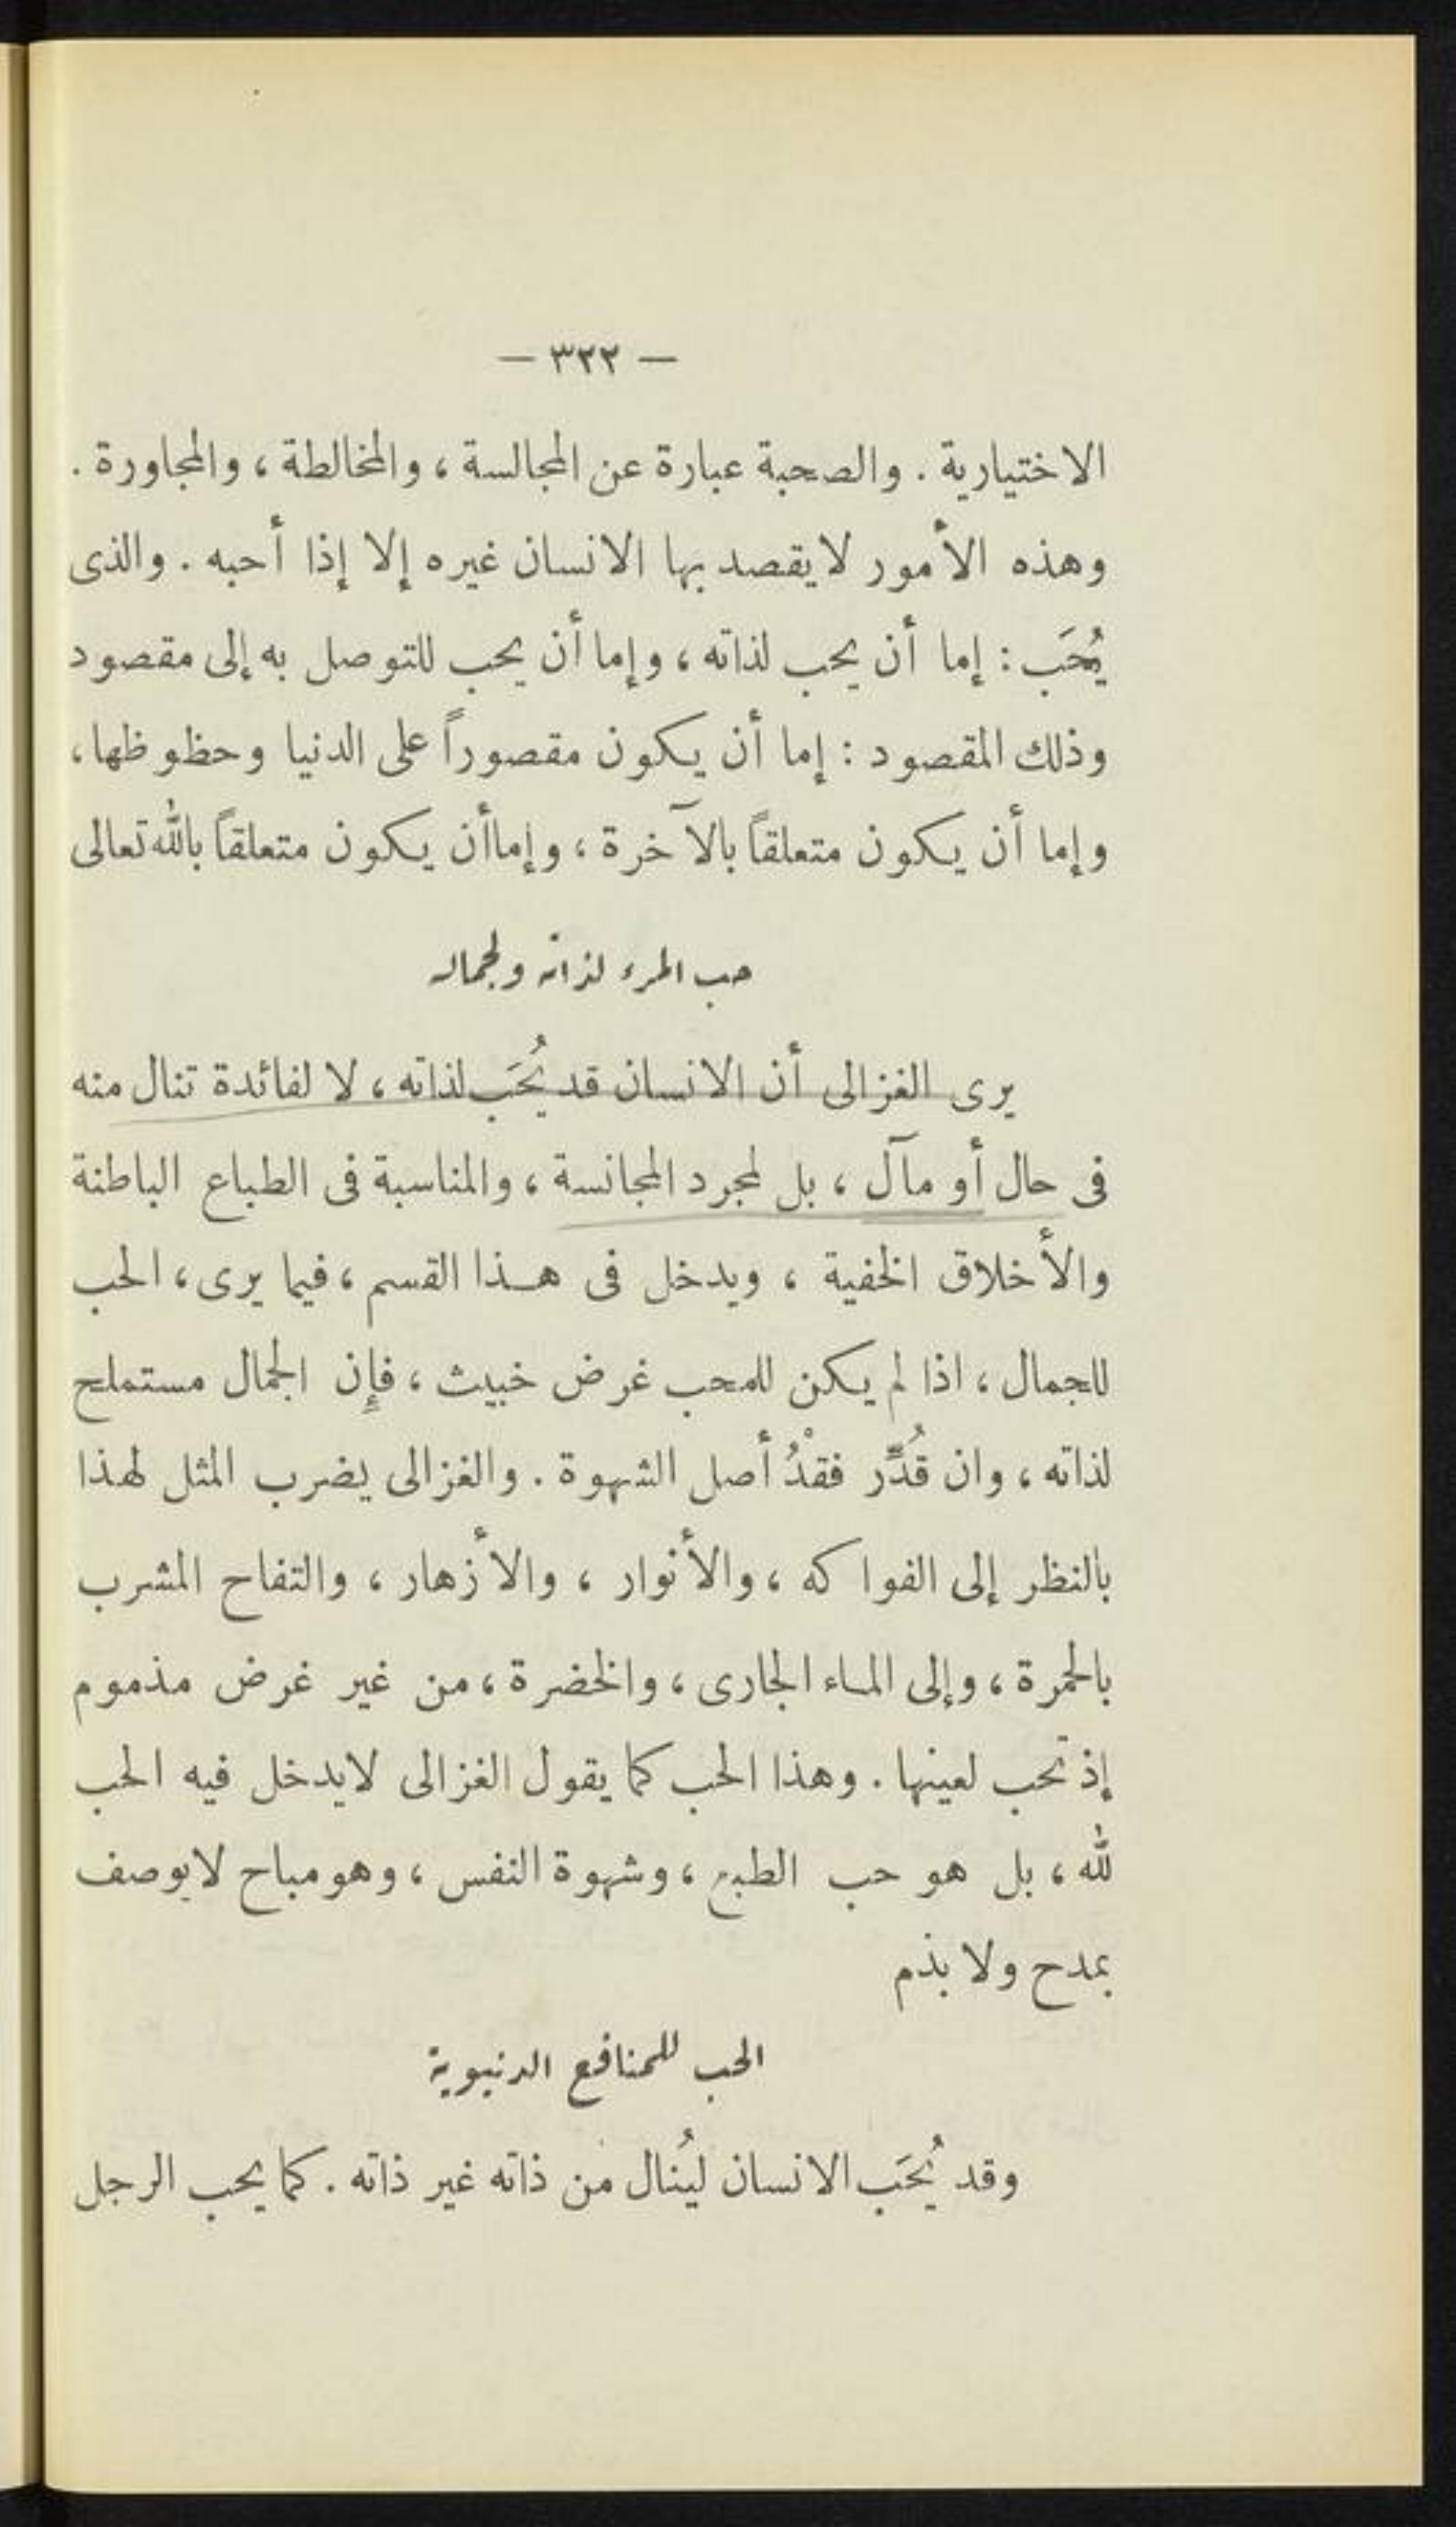 — ٣٢٢ —
الاختيارية . والصحبة عبارة عن المجالسة ، والمخالطة ، والمجاورة .
وهذه الأمور لا يقصد بها الانسان غيره إلا إذا أحبه . والذى
يُحَب : إما أن يحب لذاته ، وإما أن يحب للتوصل به إلى مقصود
وذلك المقصود : إما أن يكون مقصوراً على الدنيا وحظوظها ،
وإما أن يكون متعلقاً بالآخرة ، وإما أن يكون متعلقاً بالله تعالى
حب المرء لذاته ولجماله
يرى الغزالى أن الانسان قد يُحَب لذاته ، لا لفائدة تنال منه
فى حال أو مآل ، بل لمجرد المجانسة ، والمناسبة فى الطباع الباطنة
والأخلاق الخفية ، ويدخل فى هـذا القسم ، فيما يرى ، الحب
للجمال ، اذا لم يكن للمحب غرض خبيث ، فإِن الجمال مستملح
لذاته ، وان قُدِّر فقْدُ أصل الشهوة . والغزالى يضرب المثل لهذا
بالنظر إلى الفواكه ، والأنوار ، والأزهار ، والتفاح المشرب
بالحمرة ، وإلى المـاء الجارى ، والخضرة ، من غير غرض مذموم
إذ تحب لعينها . وهذا الحب كما يقول الغزالى لا يدخل فيه الحب
لله ، بل هو حب الطبع ، وشهوة النفس ، وهو مباح لا يوصف
بمدح ولا بذم
الحب للمنافع الدنيوية
وقد يُحَب الانسان ليُنال من ذاته غير ذاته . كما يحب الرجل